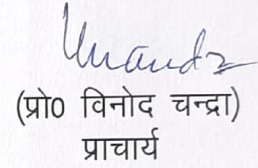 (प्रो० विनोद चन्द्रा)
प्राचार्य